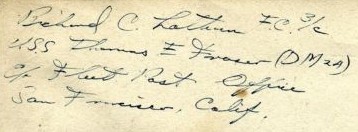 Richard C. Lathum F.C. 3/c
USS Thomas E Fraser (DM24)
c/o Fleet Post Office
San Francisco, Calif.